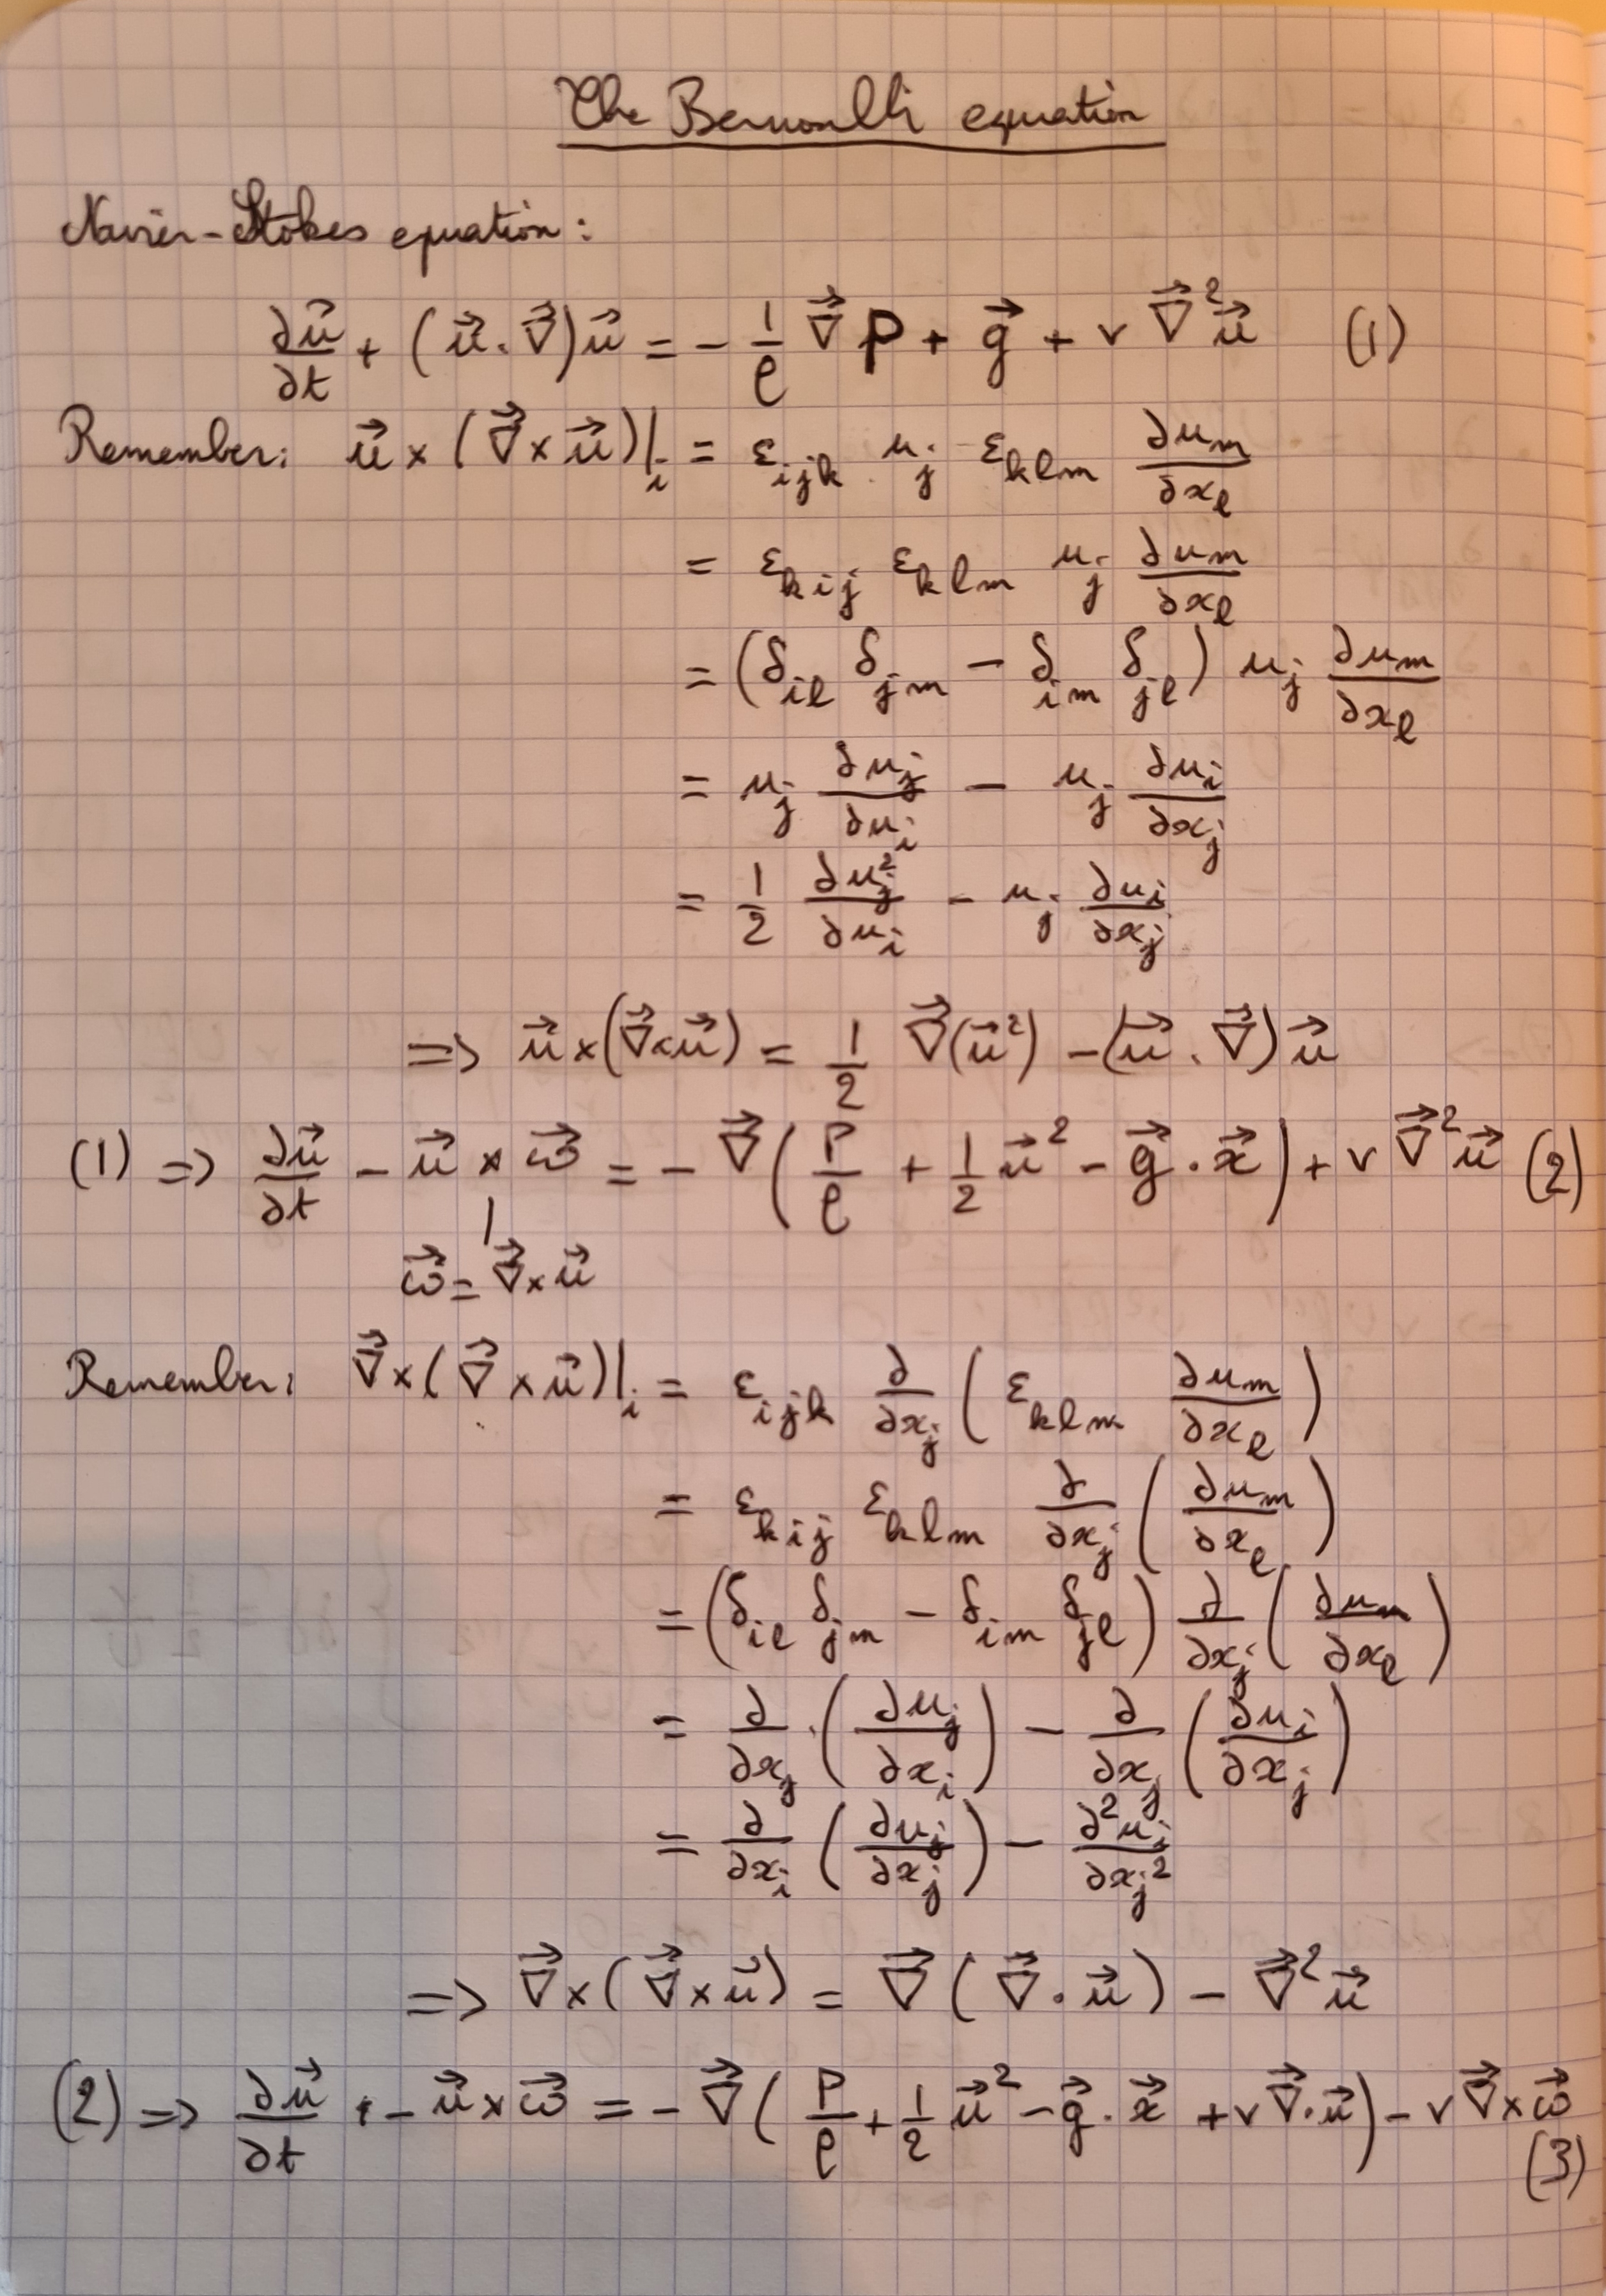 The Bernoulli equation
Navier-Stokes equation:
∂u⃗/∂t + (u⃗·∇⃗)u⃗ = - 1/ρ ∇⃗P + g⃗ + ν∇⃗²u⃗ (1)
Remember: u⃗×(∇⃗×u⃗)|_i = ε_ijk u_j ε_klm ∂u_m/∂x_l
= ε_kij ε_klm u_j ∂u_m/∂x_l
= (δ_il δ_jm - δ_im δ_jl) u_j ∂u_m/∂x_l
= u_j ∂u_j/∂u_i - u_j ∂u_i/∂x_j
= 1/2 ∂u_j²/∂u_i - u_j ∂u_i/∂x_j
=> u⃗×(∇⃗×u⃗) = 1/2 ∇⃗(u⃗²) - (u⃗·∇⃗)u⃗
(1) => ∂u⃗/∂t - u⃗×ω⃗ = - ∇⃗(P/ρ + 1/2 u⃗² - g⃗·x⃗) + ν∇⃗²u⃗ (2)
ω⃗ = ∇⃗×u⃗
Remember: ∇⃗×(∇⃗×u⃗)|_i = ε_ijk ∂/∂x_j (ε_klm ∂u_m/∂x_l)
= ε_kij ε_klm ∂/∂x_j (∂u_m/∂x_l)
= (δ_il δ_jm - δ_im δ_jl) ∂/∂x_j (∂u_m/∂x_l)
= ∂/∂x_j (∂u_j/∂x_i) - ∂/∂x_j (∂u_i/∂x_j)
= ∂/∂x_i (∂u_j/∂x_j) - ∂²u_i/∂x_j²
=> ∇⃗×(∇⃗×u⃗) = ∇⃗(∇⃗·u⃗) - ∇⃗²u⃗
(2) => ∂u⃗/∂t - u⃗×ω⃗ = - ∇⃗(P/ρ + 1/2 u⃗² - g⃗·x⃗ + ν∇⃗·u⃗) - ν∇⃗×ω⃗
(3)